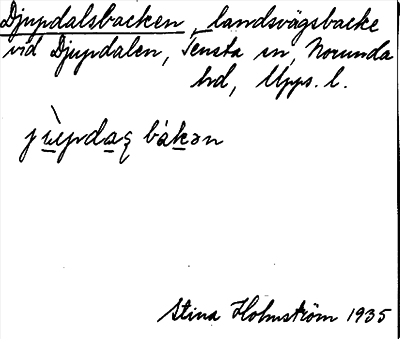 Djupdalsbacken, landsvägsbacke
vid Djupdalen, Tensta sn, Norunda
hd, Upps. l.
Stina Holmström 1935